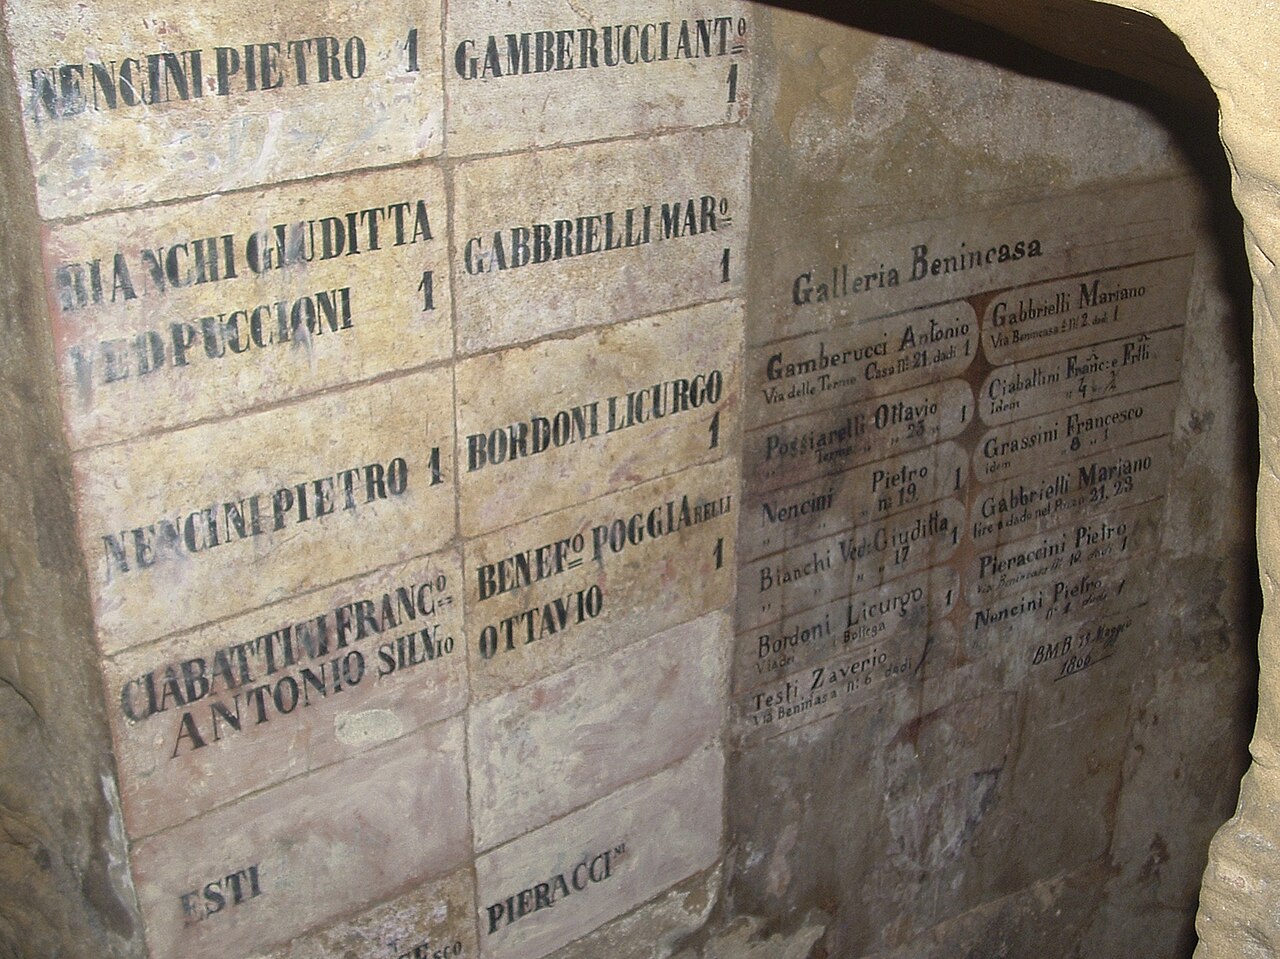 NENCINI PIETRO 1
BIANCHI GIUDITTA
VED PUCCIONI 1
NENCINI PIETRO 1
CIABATTINI FRANCº
ANTONIO SILVio
ESTI
GAMBERUCCI ANTº
1
GABBRIELLI MARº
1
BORDONI LICURGO
1
BENEFº POGGIARELLI
OTTAVIO 1
PIERACCINI
Galleria Benincasa
Gamberucci Antonio
Via delle Terme Casa Nº: 21. dadi 1
Poggiarelli Ottavio 1
Terme " 23 "
Nencini Pietro 1
" " nº 19.
Bianchi Ved: Giuditta 1
" " " 17
Bordoni Licurgo 1
Bottega
Testi Zaverio
Via Benincasa nº: 6 dadi
Gabbrielli Mariano
Via Benincasa Nº 2. dadi 1
Ciabattini Franc: e Frlli
Idem " 4
Grassini Francesco
idem " 8 " 1
Gabbrielli Mariano
dado nel Pozzo 21, 23
Pieraccini Pietro
Via Benincasa Nº 10. dadi 1
Nencini Pietro
nº 4 dadi 1
BMB Maggio